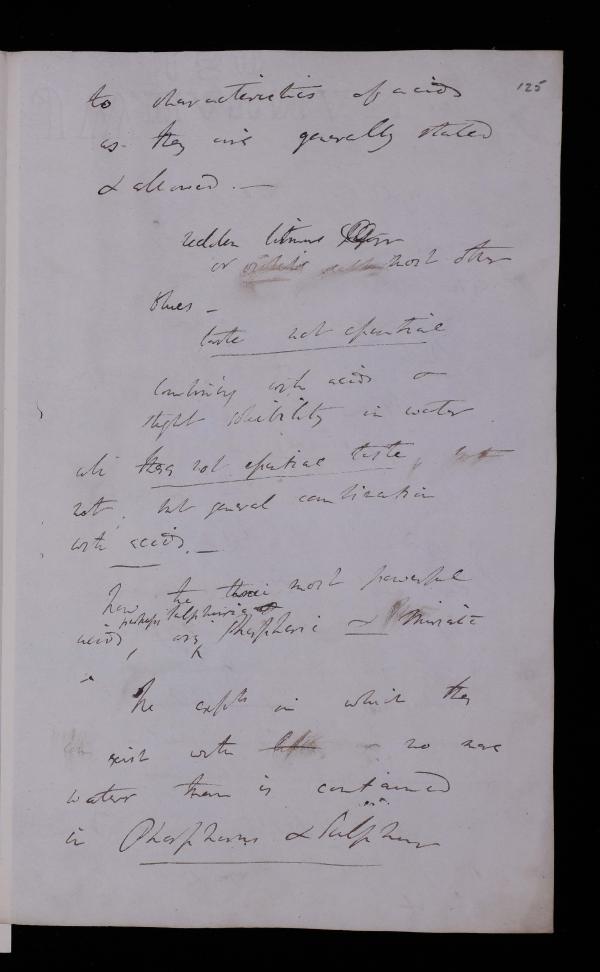 125
to characteristics of acids
as they are generally stated
& allowed. —
redden litmus
or most other
blues –
taste not essential
combining with acids or
slight solubility in water
alk they not essential taste,
not, but general combination
with acids. —
Now the three most powerful
perhaps sulphuric
acids, are Phosphoric & Muriatic
The expts in which they
exist with no more
water than is contained
in Phosphorus & Sulphur